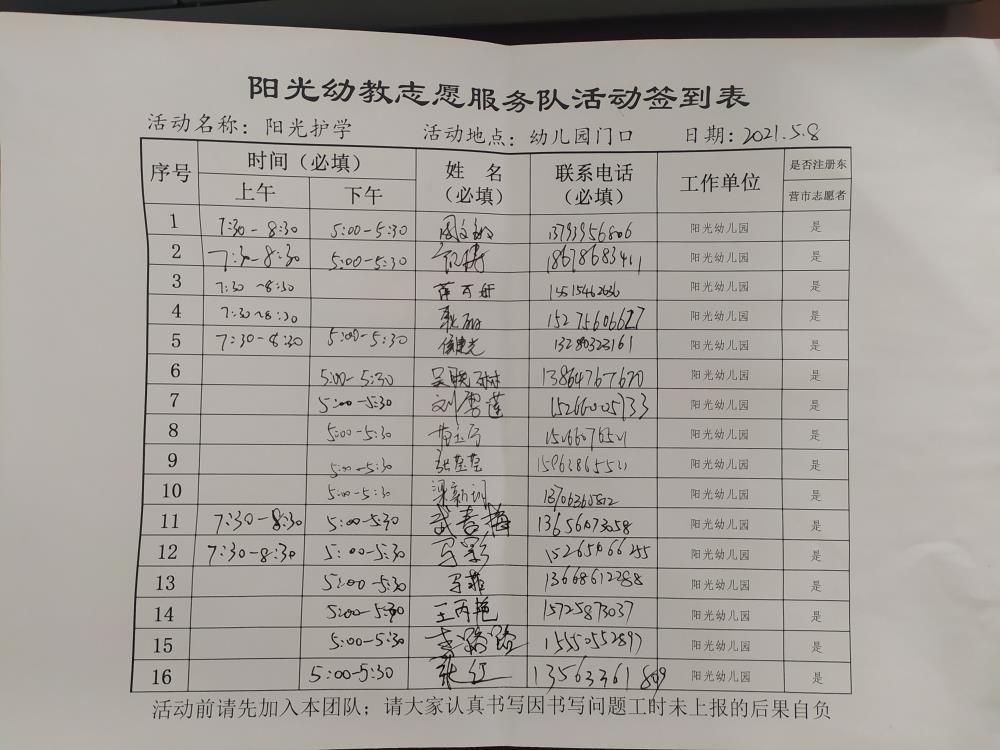 阳光幼教志愿服务队活动签到表
活动名称：阳光护学 活动地点：幼儿园门口 日期：2021.5.8
序号 时间（必填） 姓名（必填） 联系电话（必填） 工作单位 是否注册东营市志愿者
上午 下午
1 7:30-8:30 5:00-5:30 13793956806 阳光幼儿园 是
2 7:30-8:30 5:00-5:30 18678683411 阳光幼儿园 是
3 7:30~8:30 阳光幼儿园 是
4 7:30~8:30 15275606627 阳光幼儿园 是
5 7:30-8:30 5:00-5:30 13280323161 阳光幼儿园 是
6 5:00-5:30 吴晓树 13864767670 阳光幼儿园 是
7 5:00-5:30 刘雪莲 15266005733 阳光幼儿园 是
8 5:00-5:30 阳光幼儿园 是
9 5:00-5:30 张莹莹 阳光幼儿园 是
10 5:00-5:30 梁新训 13706360812 阳光幼儿园 是
11 7:30-8:30 5:00-5:30 武春梅 13656073058 阳光幼儿园 是
12 7:30-8:30 5:00-5:30 马彩 15265066255 阳光幼儿园 是
13 5:00-5:30 马菲 13668612288 阳光幼儿园 是
14 5:00-5:30 王丙艳 15725873037 阳光幼儿园 是
15 5:00-5:30 李路路 15550552897 阳光幼儿园 是
16 5:00-5:30 张红 13563361809 阳光幼儿园 是
活动前请先加入本团队；请大家认真书写因书写问题工时未上报的后果自负